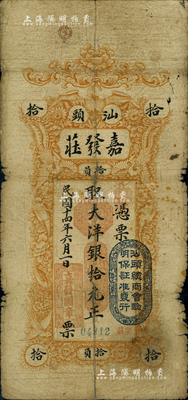 上海陽明拍賣
拾 汕頭 拾
嘉發莊
拾員
憑票
取大洋銀拾元正
民國十四年六月一日
票
汕頭總商會驗
明保証准發行
04912
拾 拾員 拾
上海陽明拍賣